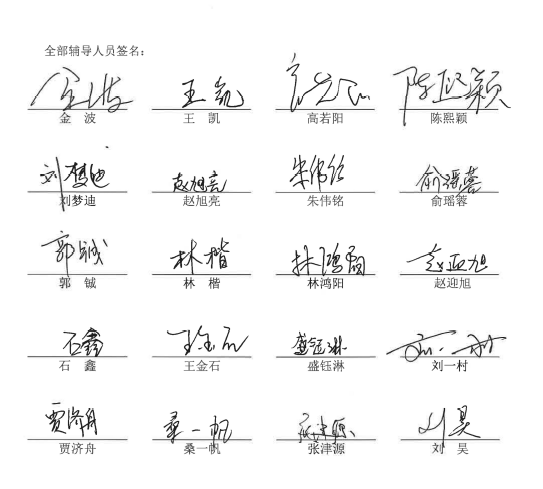 全部辅导人员签名：
金波 王凯 高若阳 陈熙颖
金 波 王 凯 高若阳 陈熙颖
刘梦迪 赵旭亮 朱伟铭 俞瑶蓉
刘梦迪 赵旭亮 朱伟铭 俞瑶蓉
郭铖 林楷 林鸿阳 赵迎旭
郭 铖 林 楷 林鸿阳 赵迎旭
石鑫 王金石 盛钰淋 刘一村
石 鑫 王金石 盛钰淋 刘一村
贾济舟 桑一帆 张津源 刘昊
贾济舟 桑一帆 张津源 刘 昊